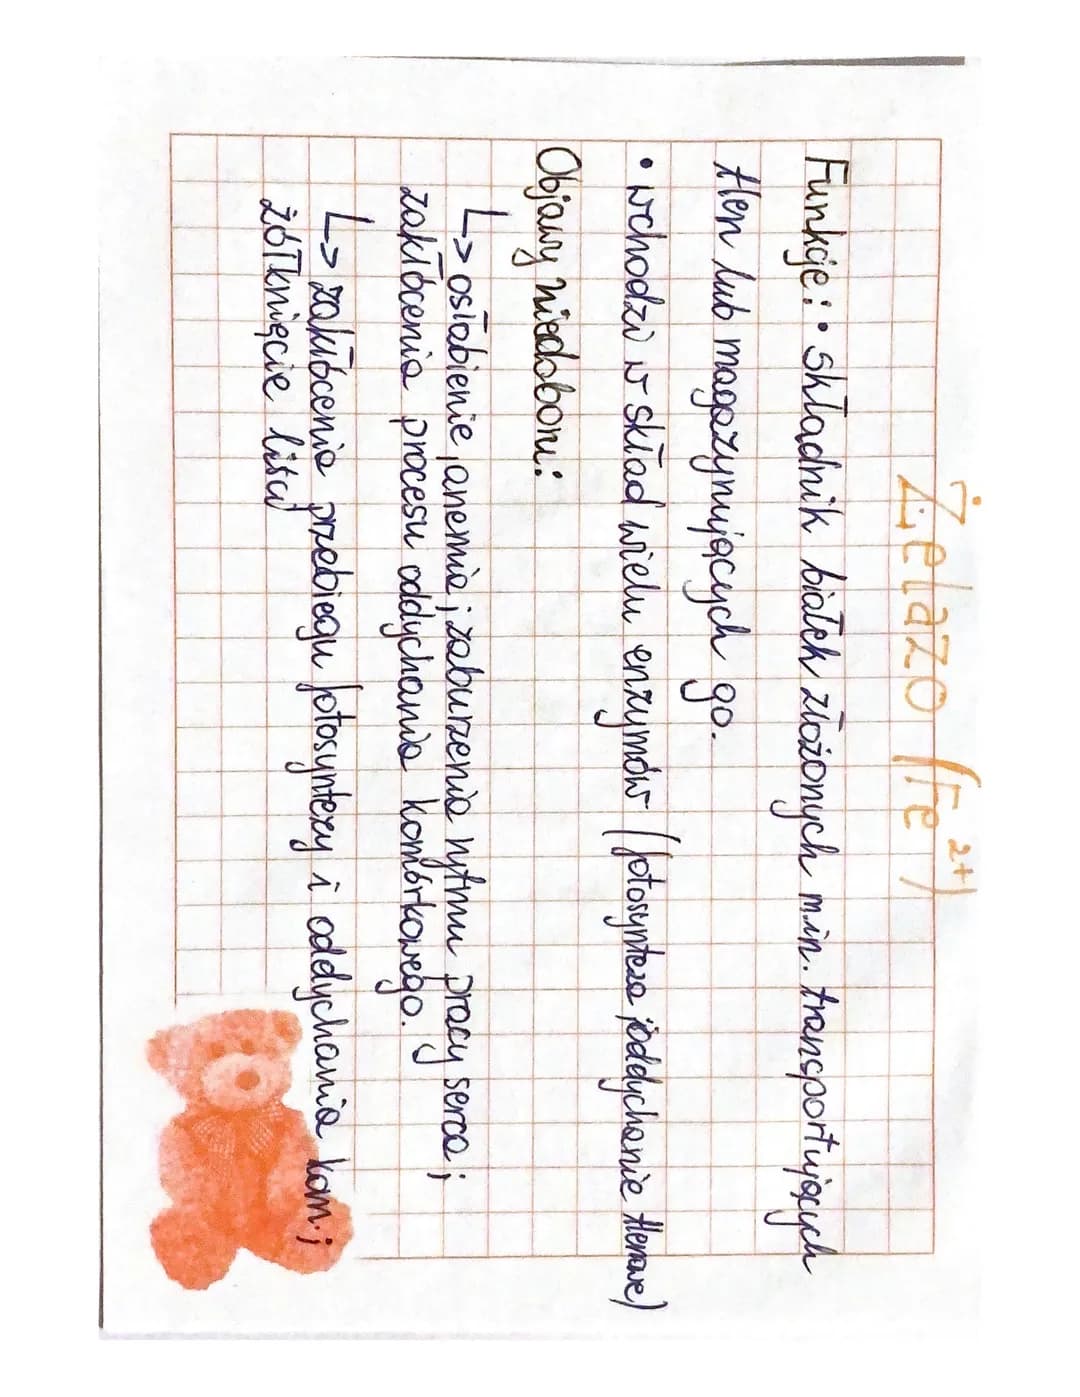 Żelazo (Fe²⁺)
Funkcje: • składnik białek złożonych m.in. transportujących
tlen lub magazynujących go.
• wchodzi w skład wielu enzymów (fotosynteza, oddychanie tlenowe)
Objawy niedoboru:
↳ osłabienie, anemia; zaburzenia rytmu pracy serca;
zakłócenia procesu oddychania komórkowego.
↳ zakłócenia przebiegu fotosyntezy i oddychania kom.;
żółknięcie liści